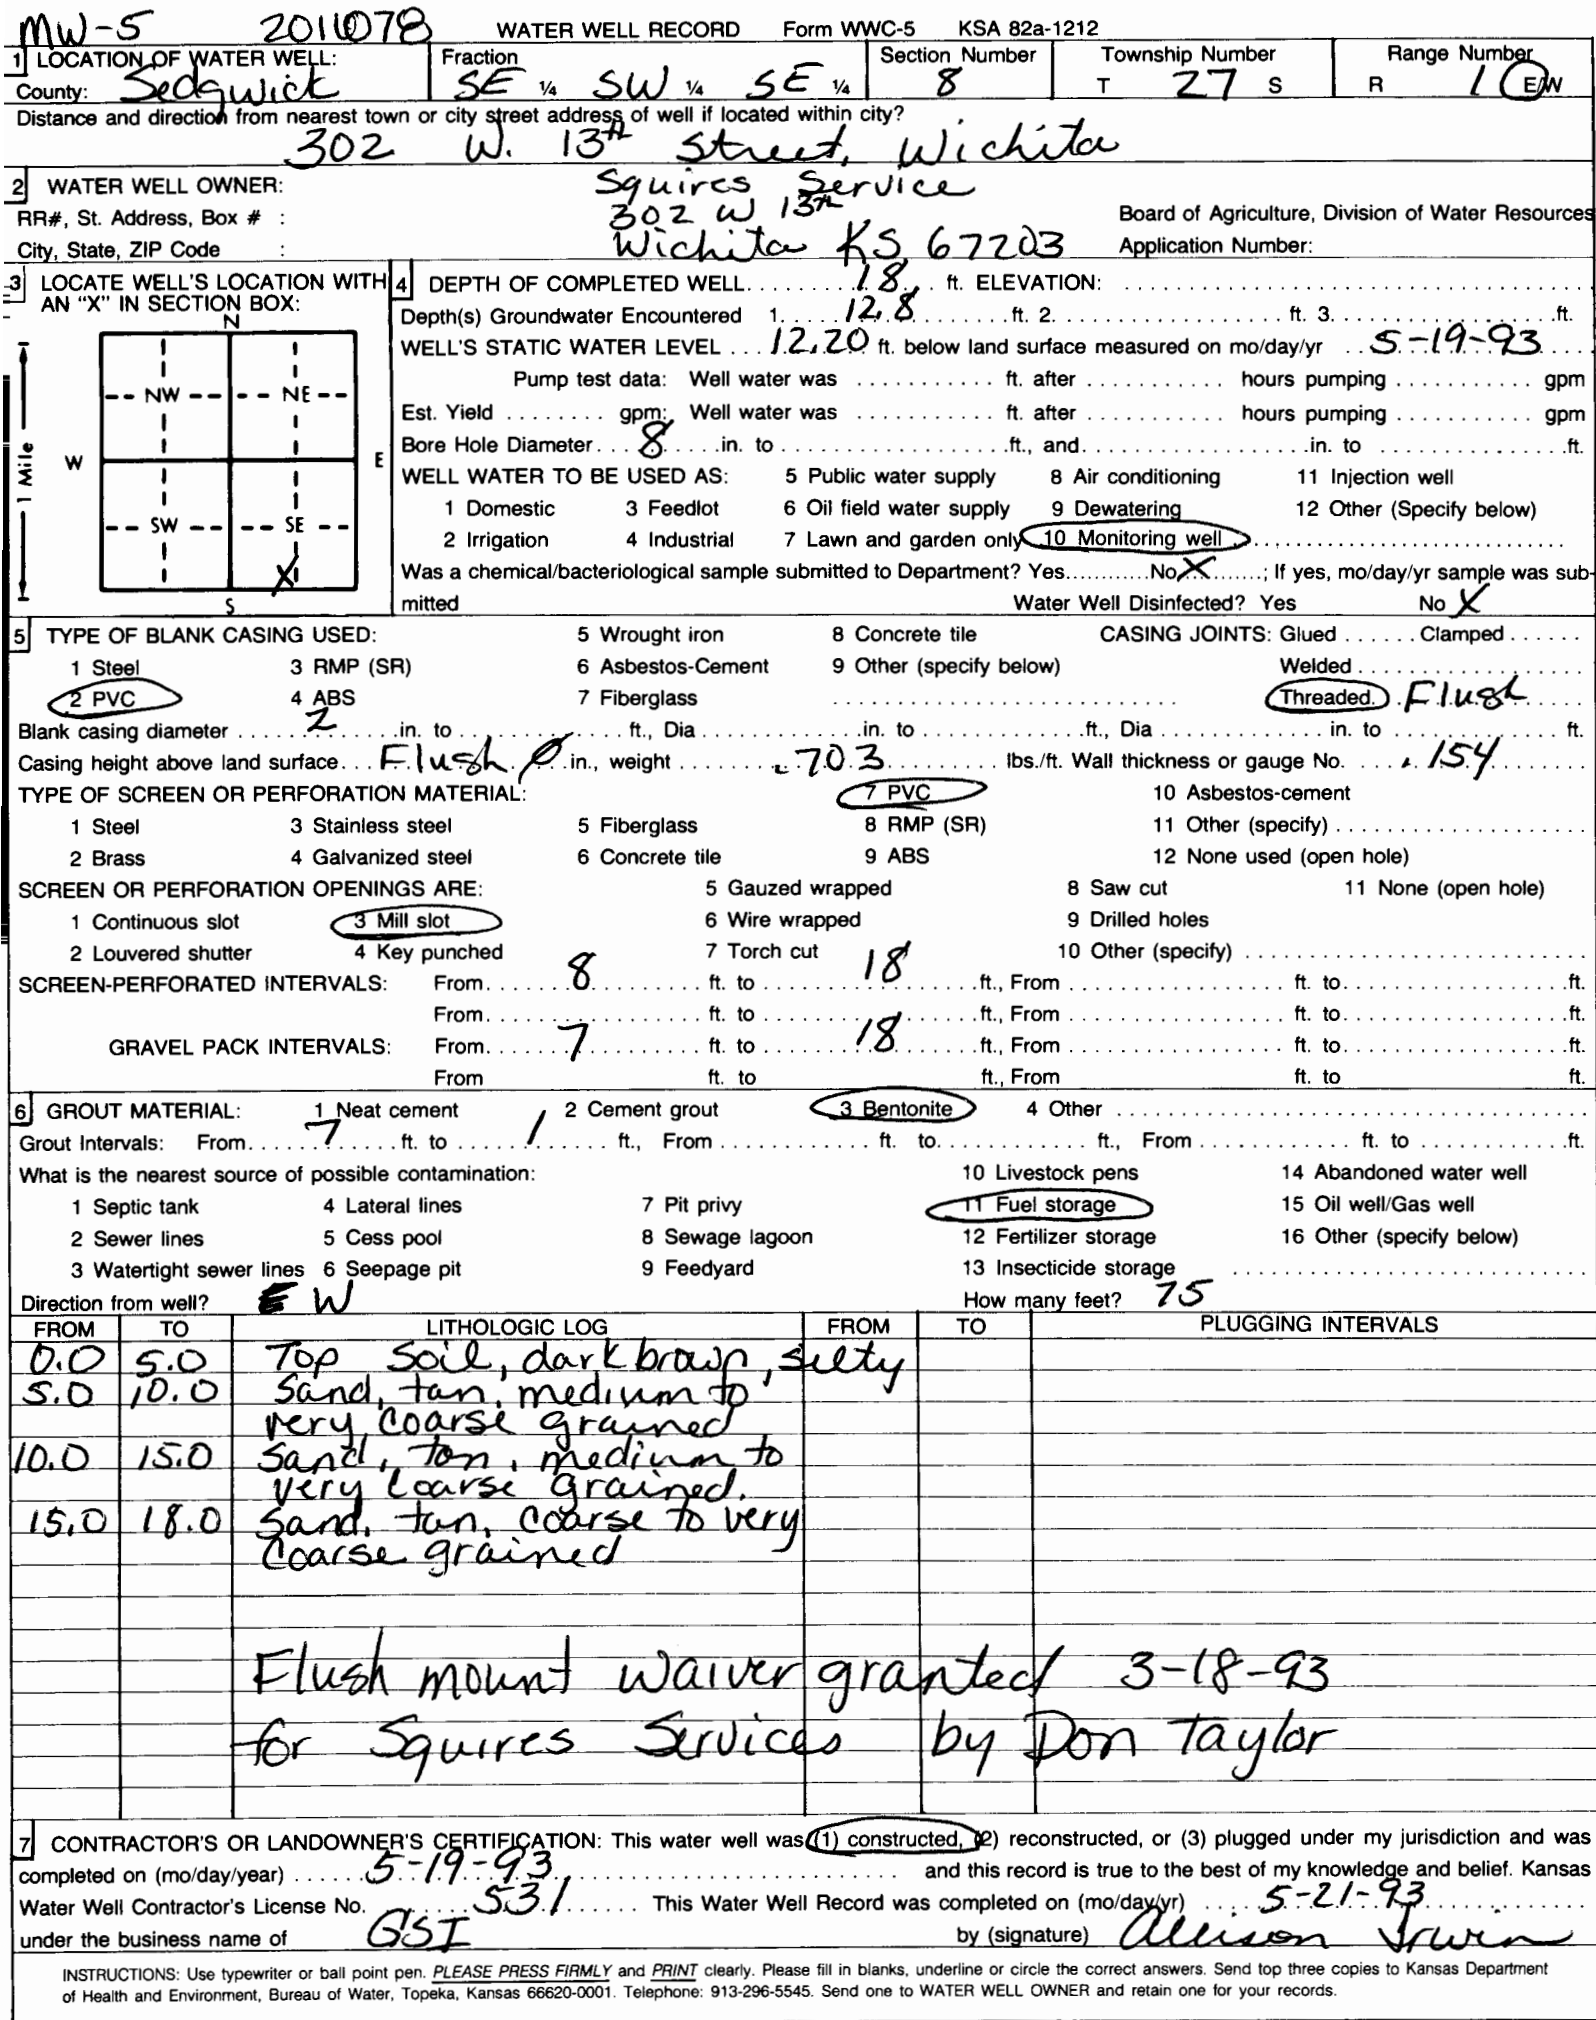 MW-5 2011078 WATER WELL RECORD Form WWC-5 KSA 82a-1212
1 LOCATION OF WATER WELL: Fraction Section Number Township Number Range Number
County: Sedgwick SE ¼ SW ¼ SE ¼ 8 T 27 S R 1 E/W
Distance and direction from nearest town or city street address of well if located within city?
302 W. 13th Street, Wichita
2 WATER WELL OWNER: Squires Service
RR#, St. Address, Box # : 302 W 13th Board of Agriculture, Division of Water Resources
City, State, ZIP Code : Wichita KS, 67203 Application Number:
3 LOCATE WELL'S LOCATION WITH AN "X" IN SECTION BOX:
N
NW NE
W E
1 Mile
SW SE
X
S
4 DEPTH OF COMPLETED WELL 18 ft. ELEVATION:
Depth(s) Groundwater Encountered 1. 12.8 ft. 2. ft. 3. ft.
WELL'S STATIC WATER LEVEL 12.20 ft. below land surface measured on mo/day/yr 5-19-93
Pump test data: Well water was ft. after hours pumping gpm
Est. Yield gpm; Well water was ft. after hours pumping gpm
Bore Hole Diameter 8 in. to ft., and in. to ft.
WELL WATER TO BE USED AS: 5 Public water supply 8 Air conditioning 11 Injection well
1 Domestic 3 Feedlot 6 Oil field water supply 9 Dewatering 12 Other (Specify below)
2 Irrigation 4 Industrial 7 Lawn and garden only 10 Monitoring well
Was a chemical/bacteriological sample submitted to Department? Yes No X ; If yes, mo/day/yr sample was sub-
mitted Water Well Disinfected? Yes No X
5 TYPE OF BLANK CASING USED: 5 Wrought iron 8 Concrete tile CASING JOINTS: Glued Clamped
1 Steel 3 RMP (SR) 6 Asbestos-Cement 9 Other (specify below) Welded
2 PVC 4 ABS 7 Fiberglass Threaded. Flush
Blank casing diameter 2 in. to ft., Dia in. to ft., Dia in. to ft.
Casing height above land surface Flush 0 in., weight .703 lbs./ft. Wall thickness or gauge No. .154
TYPE OF SCREEN OR PERFORATION MATERIAL: 7 PVC 10 Asbestos-cement
1 Steel 3 Stainless steel 5 Fiberglass 8 RMP (SR) 11 Other (specify)
2 Brass 4 Galvanized steel 6 Concrete tile 9 ABS 12 None used (open hole)
SCREEN OR PERFORATION OPENINGS ARE: 5 Gauzed wrapped 8 Saw cut 11 None (open hole)
1 Continuous slot 3 Mill slot 6 Wire wrapped 9 Drilled holes
2 Louvered shutter 4 Key punched 7 Torch cut 10 Other (specify)
SCREEN-PERFORATED INTERVALS: From 8 ft. to 18 ft., From ft. to ft.
From ft. to ft., From ft. to ft.
GRAVEL PACK INTERVALS: From 7 ft. to 18 ft., From ft. to ft.
From ft. to ft., From ft. to ft.
6 GROUT MATERIAL: 1 Neat cement 2 Cement grout 3 Bentonite 4 Other
Grout Intervals: From 7 ft. to 1 ft., From ft. to ft., From ft. to ft.
What is the nearest source of possible contamination: 10 Livestock pens 14 Abandoned water well
1 Septic tank 4 Lateral lines 7 Pit privy 11 Fuel storage 15 Oil well/Gas well
2 Sewer lines 5 Cess pool 8 Sewage lagoon 12 Fertilizer storage 16 Other (specify below)
3 Watertight sewer lines 6 Seepage pit 9 Feedyard 13 Insecticide storage
Direction from well? W How many feet? 75
FROM TO LITHOLOGIC LOG FROM TO PLUGGING INTERVALS
0.0 5.0 Top Soil, dark brown, silty
5.0 10.0 Sand, tan, medium to
very coarse grained
10.0 15.0 Sand, tan, medium to
very coarse grained.
15.0 18.0 Sand, tan, coarse to very
coarse grained
Flush mount waiver granted 3-18-93
for Squires Services by Don Taylor
7 CONTRACTOR'S OR LANDOWNER'S CERTIFICATION: This water well was (1) constructed, (2) reconstructed, or (3) plugged under my jurisdiction and was
completed on (mo/day/year) 5-19-93 and this record is true to the best of my knowledge and belief. Kansas
Water Well Contractor's License No. 531 This Water Well Record was completed on (mo/day/yr) 5-21-93
under the business name of GSI by (signature) Allison Irwin
INSTRUCTIONS: Use typewriter or ball point pen. PLEASE PRESS FIRMLY and PRINT clearly. Please fill in blanks, underline or circle the correct answers. Send top three copies to Kansas Department
of Health and Environment, Bureau of Water, Topeka, Kansas 66620-0001. Telephone: 913-296-5545. Send one to WATER WELL OWNER and retain one for your records.